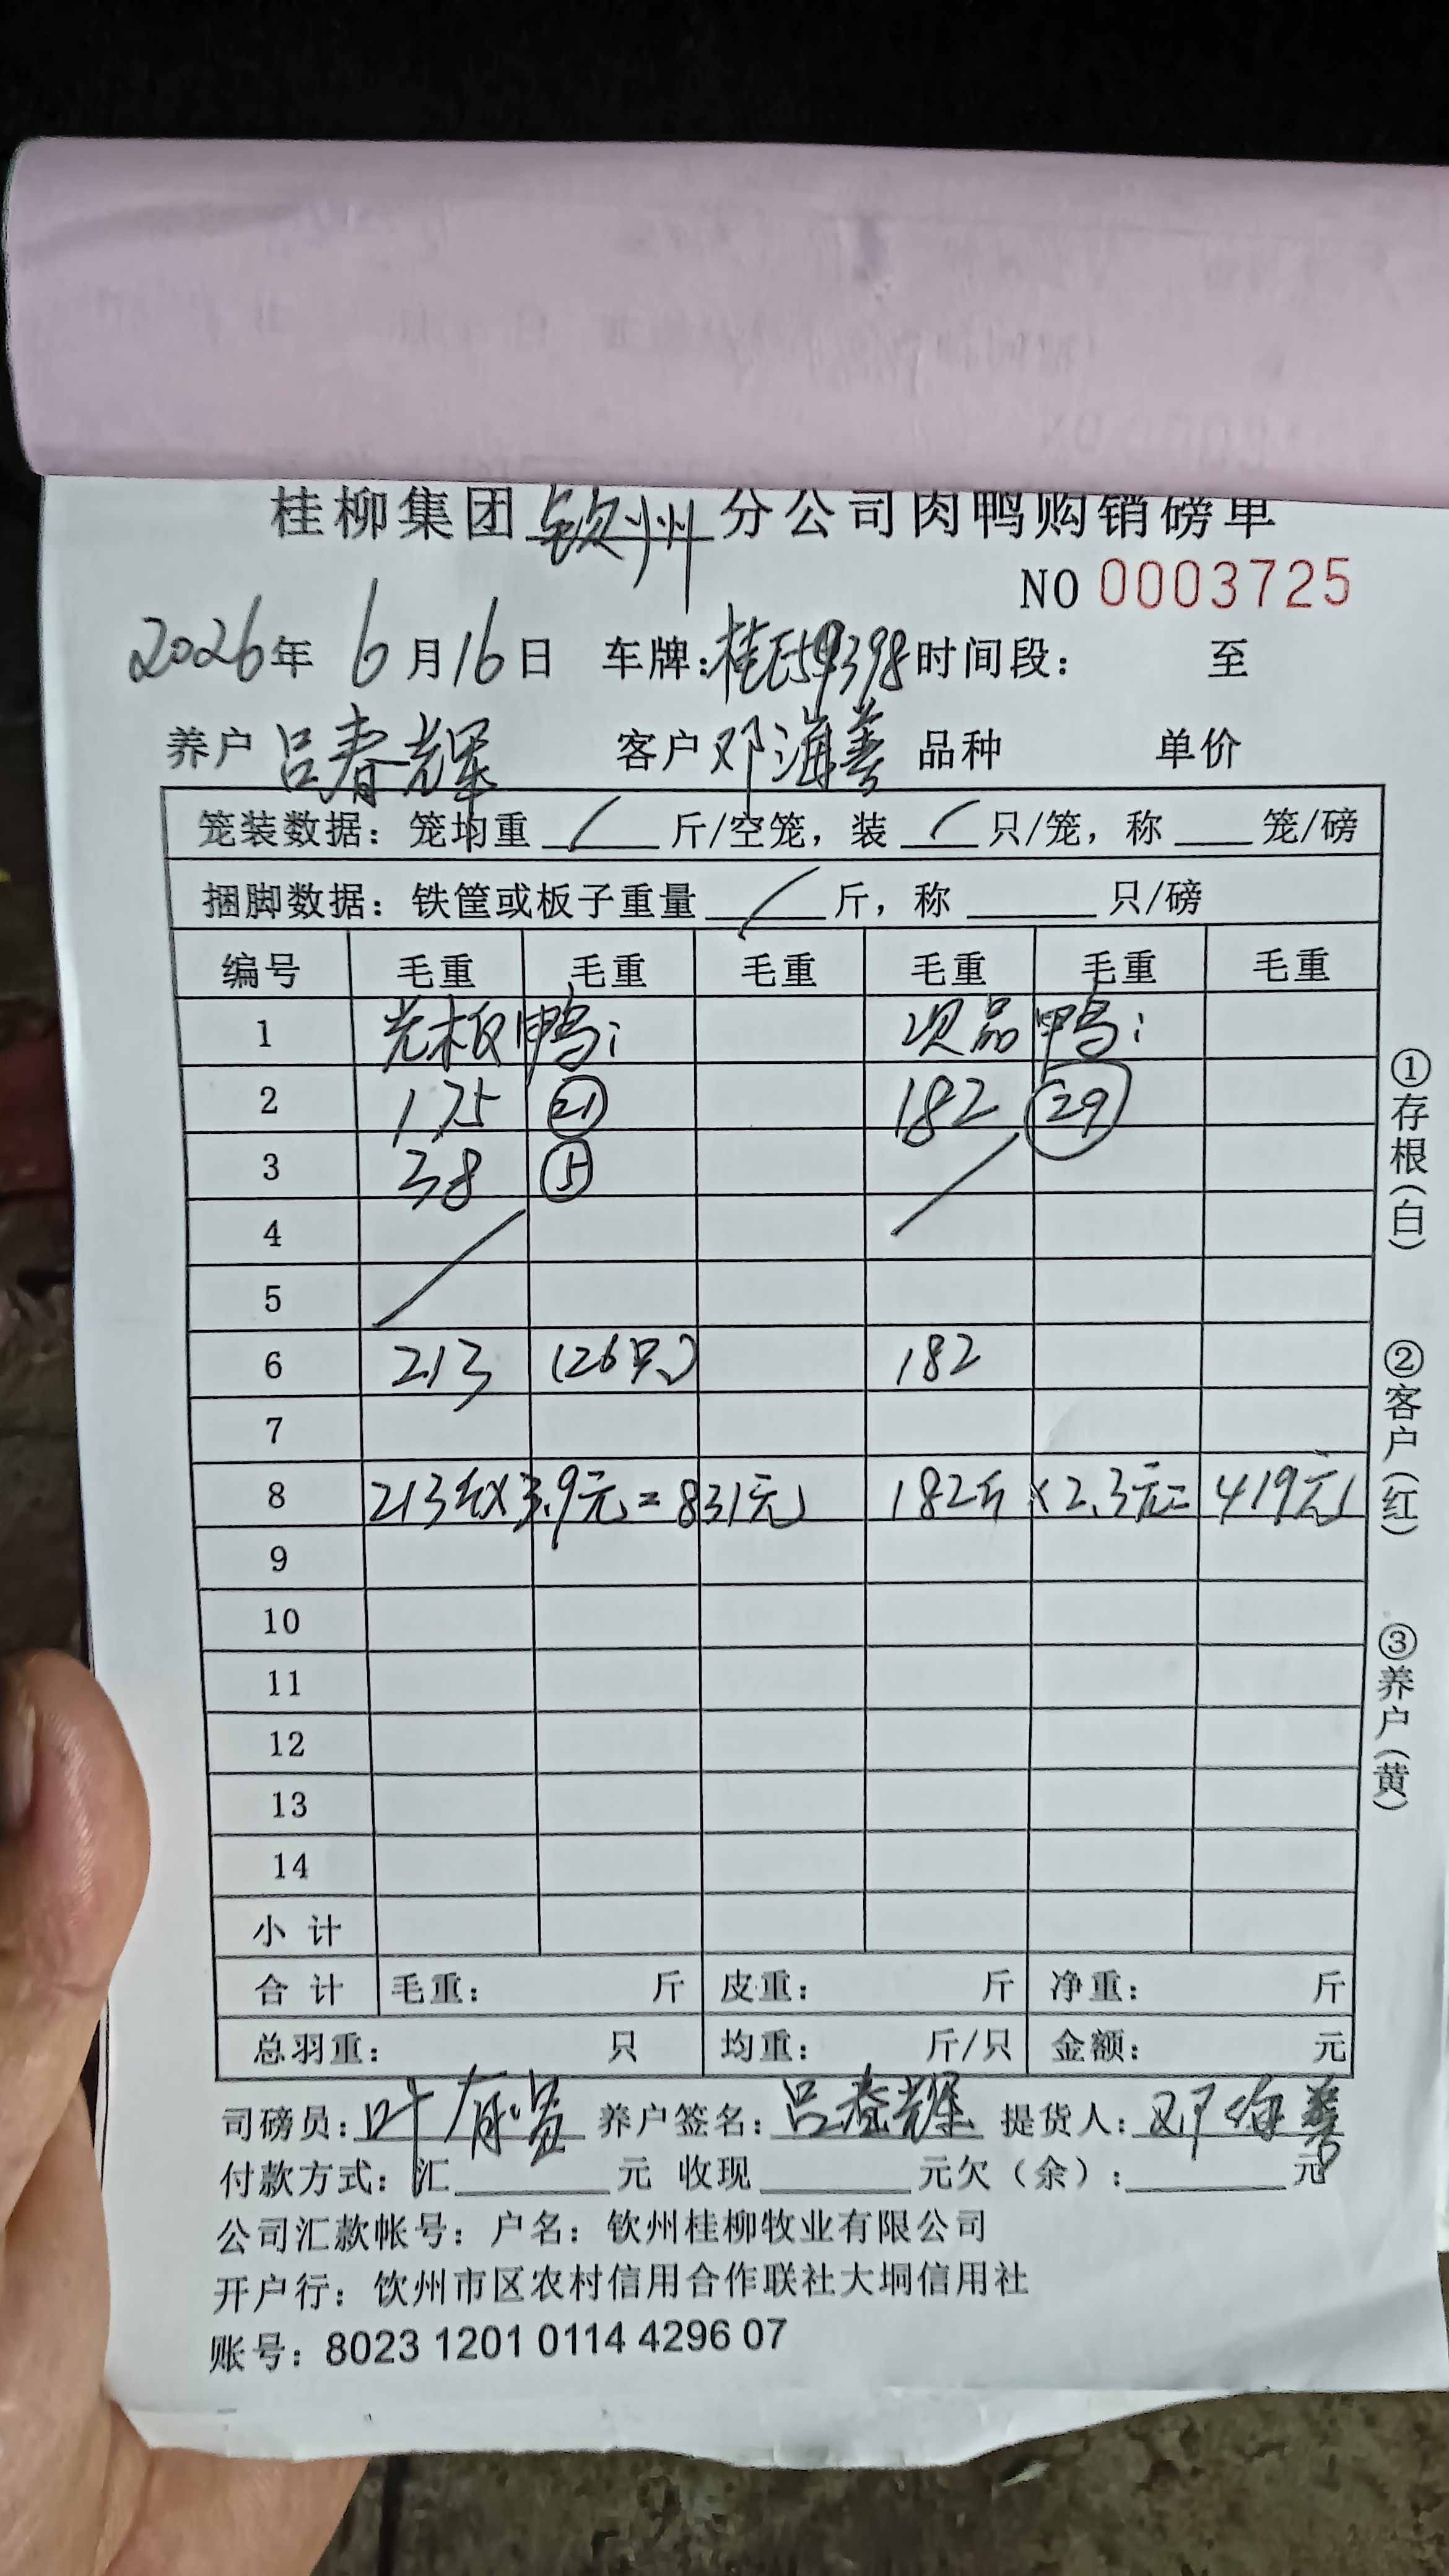 桂柳集团 钦州 分公司肉鸭购销磅单
NO 0003725
2026年 6月16日 车牌:桂E59398 时间段: 至
养户 吕春辉 客户 邓海善 品种 单价
笼装数据: 笼均重 / 斤/空笼, 装 / 只/笼, 称 笼/磅
捆脚数据: 铁筐或板子重量 / 斤, 称 只/磅
编号 毛重 毛重 毛重 毛重 毛重 毛重
1 光板鸭: 次品鸭:
2 175 21 182 29
3 38 5
4
5
6 213 (26只) 182
7
8 213斤×3.9元=831元 182斤×2.3元=419元
9
10
11
12
13
14
小计
合计 毛重: 斤 皮重: 斤 净重: 斤
总羽重: 只 均重: 斤/只 金额: 元
司磅员: 叶 养户签名: 吕春辉 提货人: 邓海善
付款方式: 汇 元 收现 元欠(余): 元
公司汇款帐号: 户名: 钦州桂柳牧业有限公司
开户行: 钦州市区农村信用合作联社大垌信用社
账号: 8023 1201 0114 4296 07
①存根(白)
②客户(红)
③养户(黄)